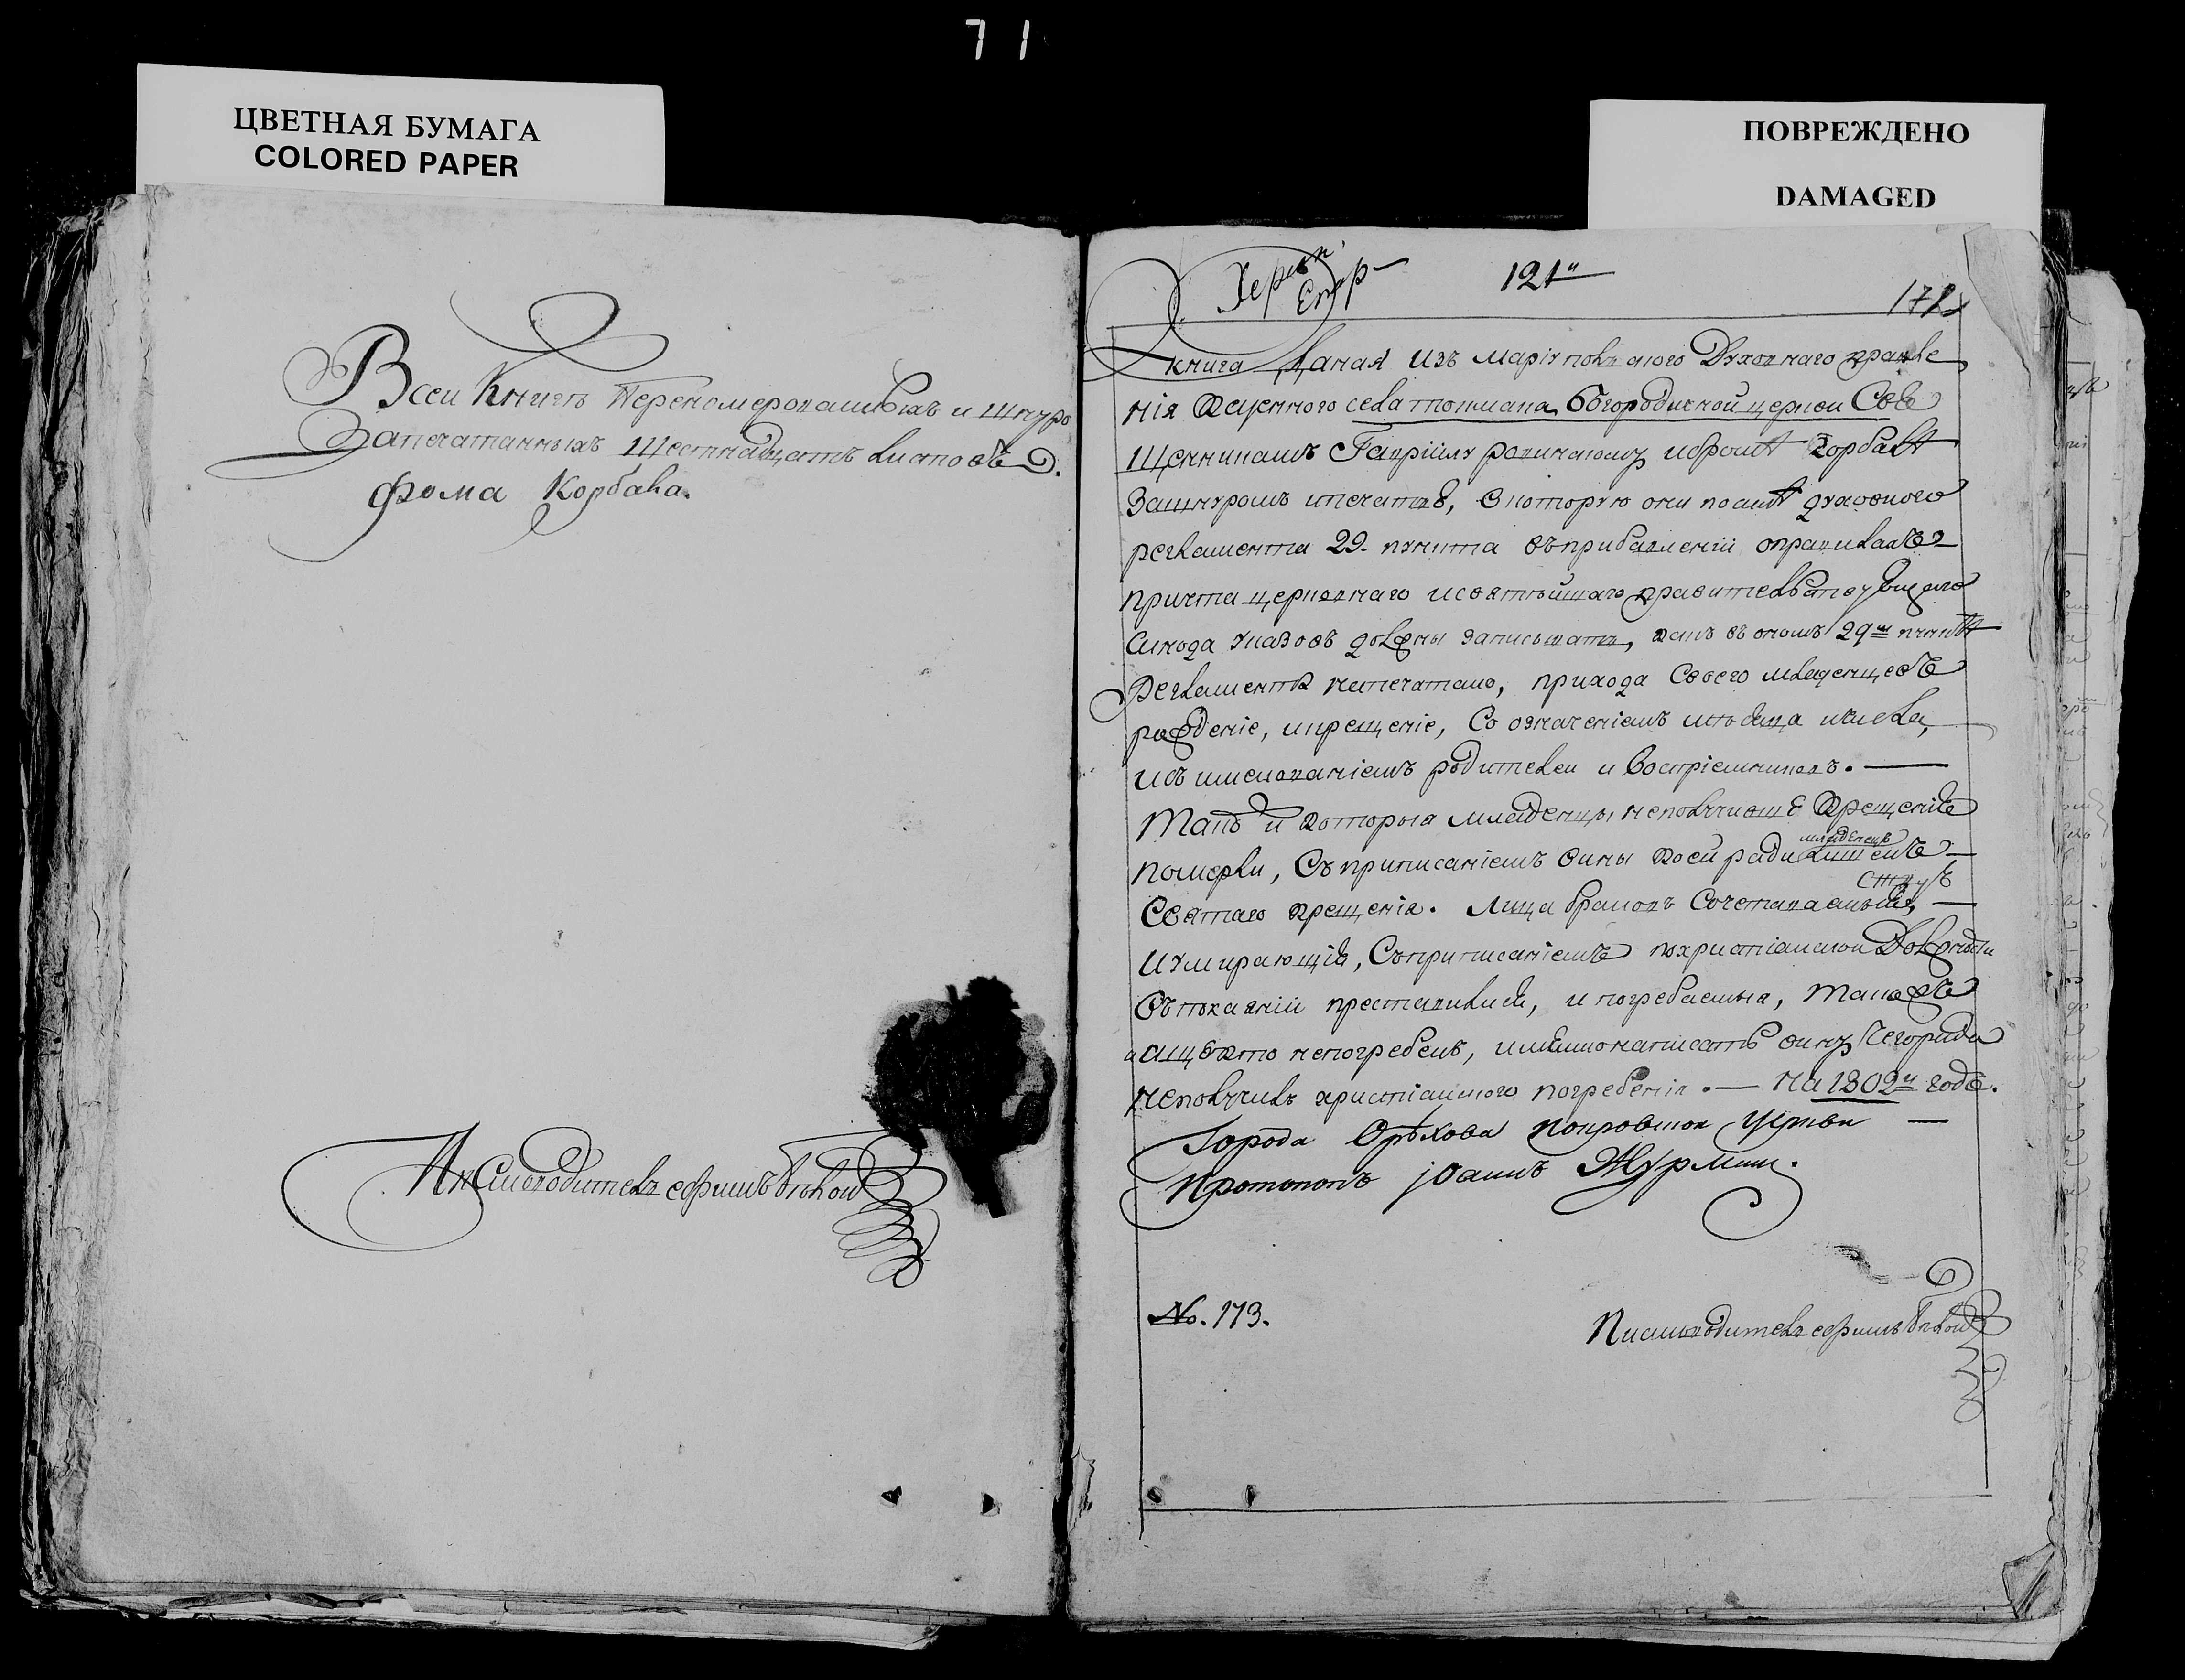 71
ЦВЕТНАЯ БУМАГА
COLORED PAPER
ПОВРЕЖДЕНО
DAMAGED
Всеи Книгѣ Перенумерованныхъ и шнуро
Запечатанныхъ Шестнадцать листовъ
Фома Корбава.
Писмоводитель ефимъ
121
книга Даная изъ Маріупольского Духовного правле
нія казенного села токмака Богородичной церкви Свя
щенникамъ Гавріилу и фомѣ Корбавѣ
За шнуромъ и печатью, в которую они по силѣ духовного
регламента 29. пункта въ прибавленіи о правилахъ
причта церковнаго и святѣйшаго правительствующего
Синода указовъ должны записывать, какъ въ ономъ 29м пунктѣ
Регламента напечатано, прихода Своего младенцевъ
рожденіе, и крещеніе, Со означеніемъ мѣсяца и числа,
и съ именованіемъ родителеи и Воспріемниковъ. —
Такъ и которыя младенцы неполучивше Крещеніе
померли, Съ приписаніемъ вины коей ради младенецъ лишенъ —
Святаго крещенія. Лица бракомъ Сочетаваемыя, —
и умирающія, Съ приписаніемъ по христіанскои Должности
въ покаяніи преставились, и погребаемыя, также
и аще кто непогребенъ, имянно написать вину Чего ради
неполучилъ христіанского погребенія. — На 1802й годъ.
Города Орѣхова покровской Церкви —
Протопопъ Іоаннъ
No. 173.
Писмоводитель ефимъ